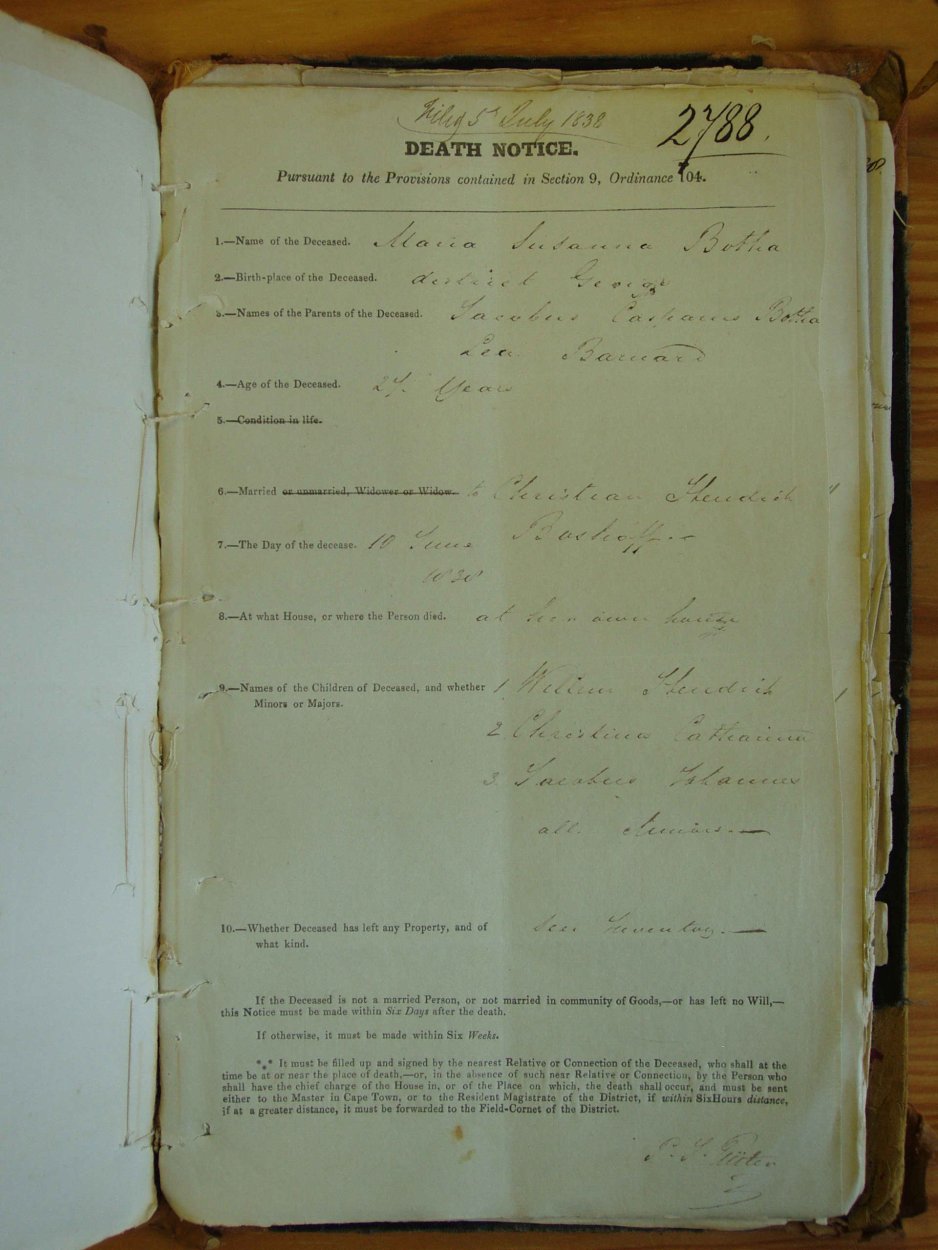 Filed 5 July 1838
2788.
DEATH NOTICE.
Pursuant to the Provisions contained in Section 9, Ordinance 104.
1.—Name of the Deceased. Maria Susanna Botha
2.—Birth-place of the Deceased. district George
3.—Names of the Parents of the Deceased. Jacobus Casparus Botha
Lea Barnard
4.—Age of the Deceased. Years
5.—Condition in life.
6.—Married or unmarried, Widower or Widow. to Christian Hendrik
Boshoff.—
7.—The Day of the decease. 10 June
1838
8.—At what House, or where the Person died. at her own house
9.—Names of the Children of Deceased, and whether 1 Willem Hendrik
Minors or Majors.
2 Christina Catharina
3 Jacobus Johannes
all Minors.—
10.—Whether Deceased has left any Property, and of see Inventory.—
what kind.
If the Deceased is not a married Person, or not married in community of Goods,—or has left no Will,—
this Notice must be made within Six Days after the death.
If otherwise, it must be made within Six Weeks.
*** It must be filled up and signed by the nearest Relative or Connection of the Deceased, who shall at the
time be at or near the place of death,—or, in the absence of such near Relative or Connection, by the Person who
shall have the chief charge of the House in, or of the Place on which, the death shall occur, and must be sent
either to the Master in Cape Town, or to the Resident Magistrate of the District, if within SixHours distance,
if at a greater distance, it must be forwarded to the Field-Cornet of the District.